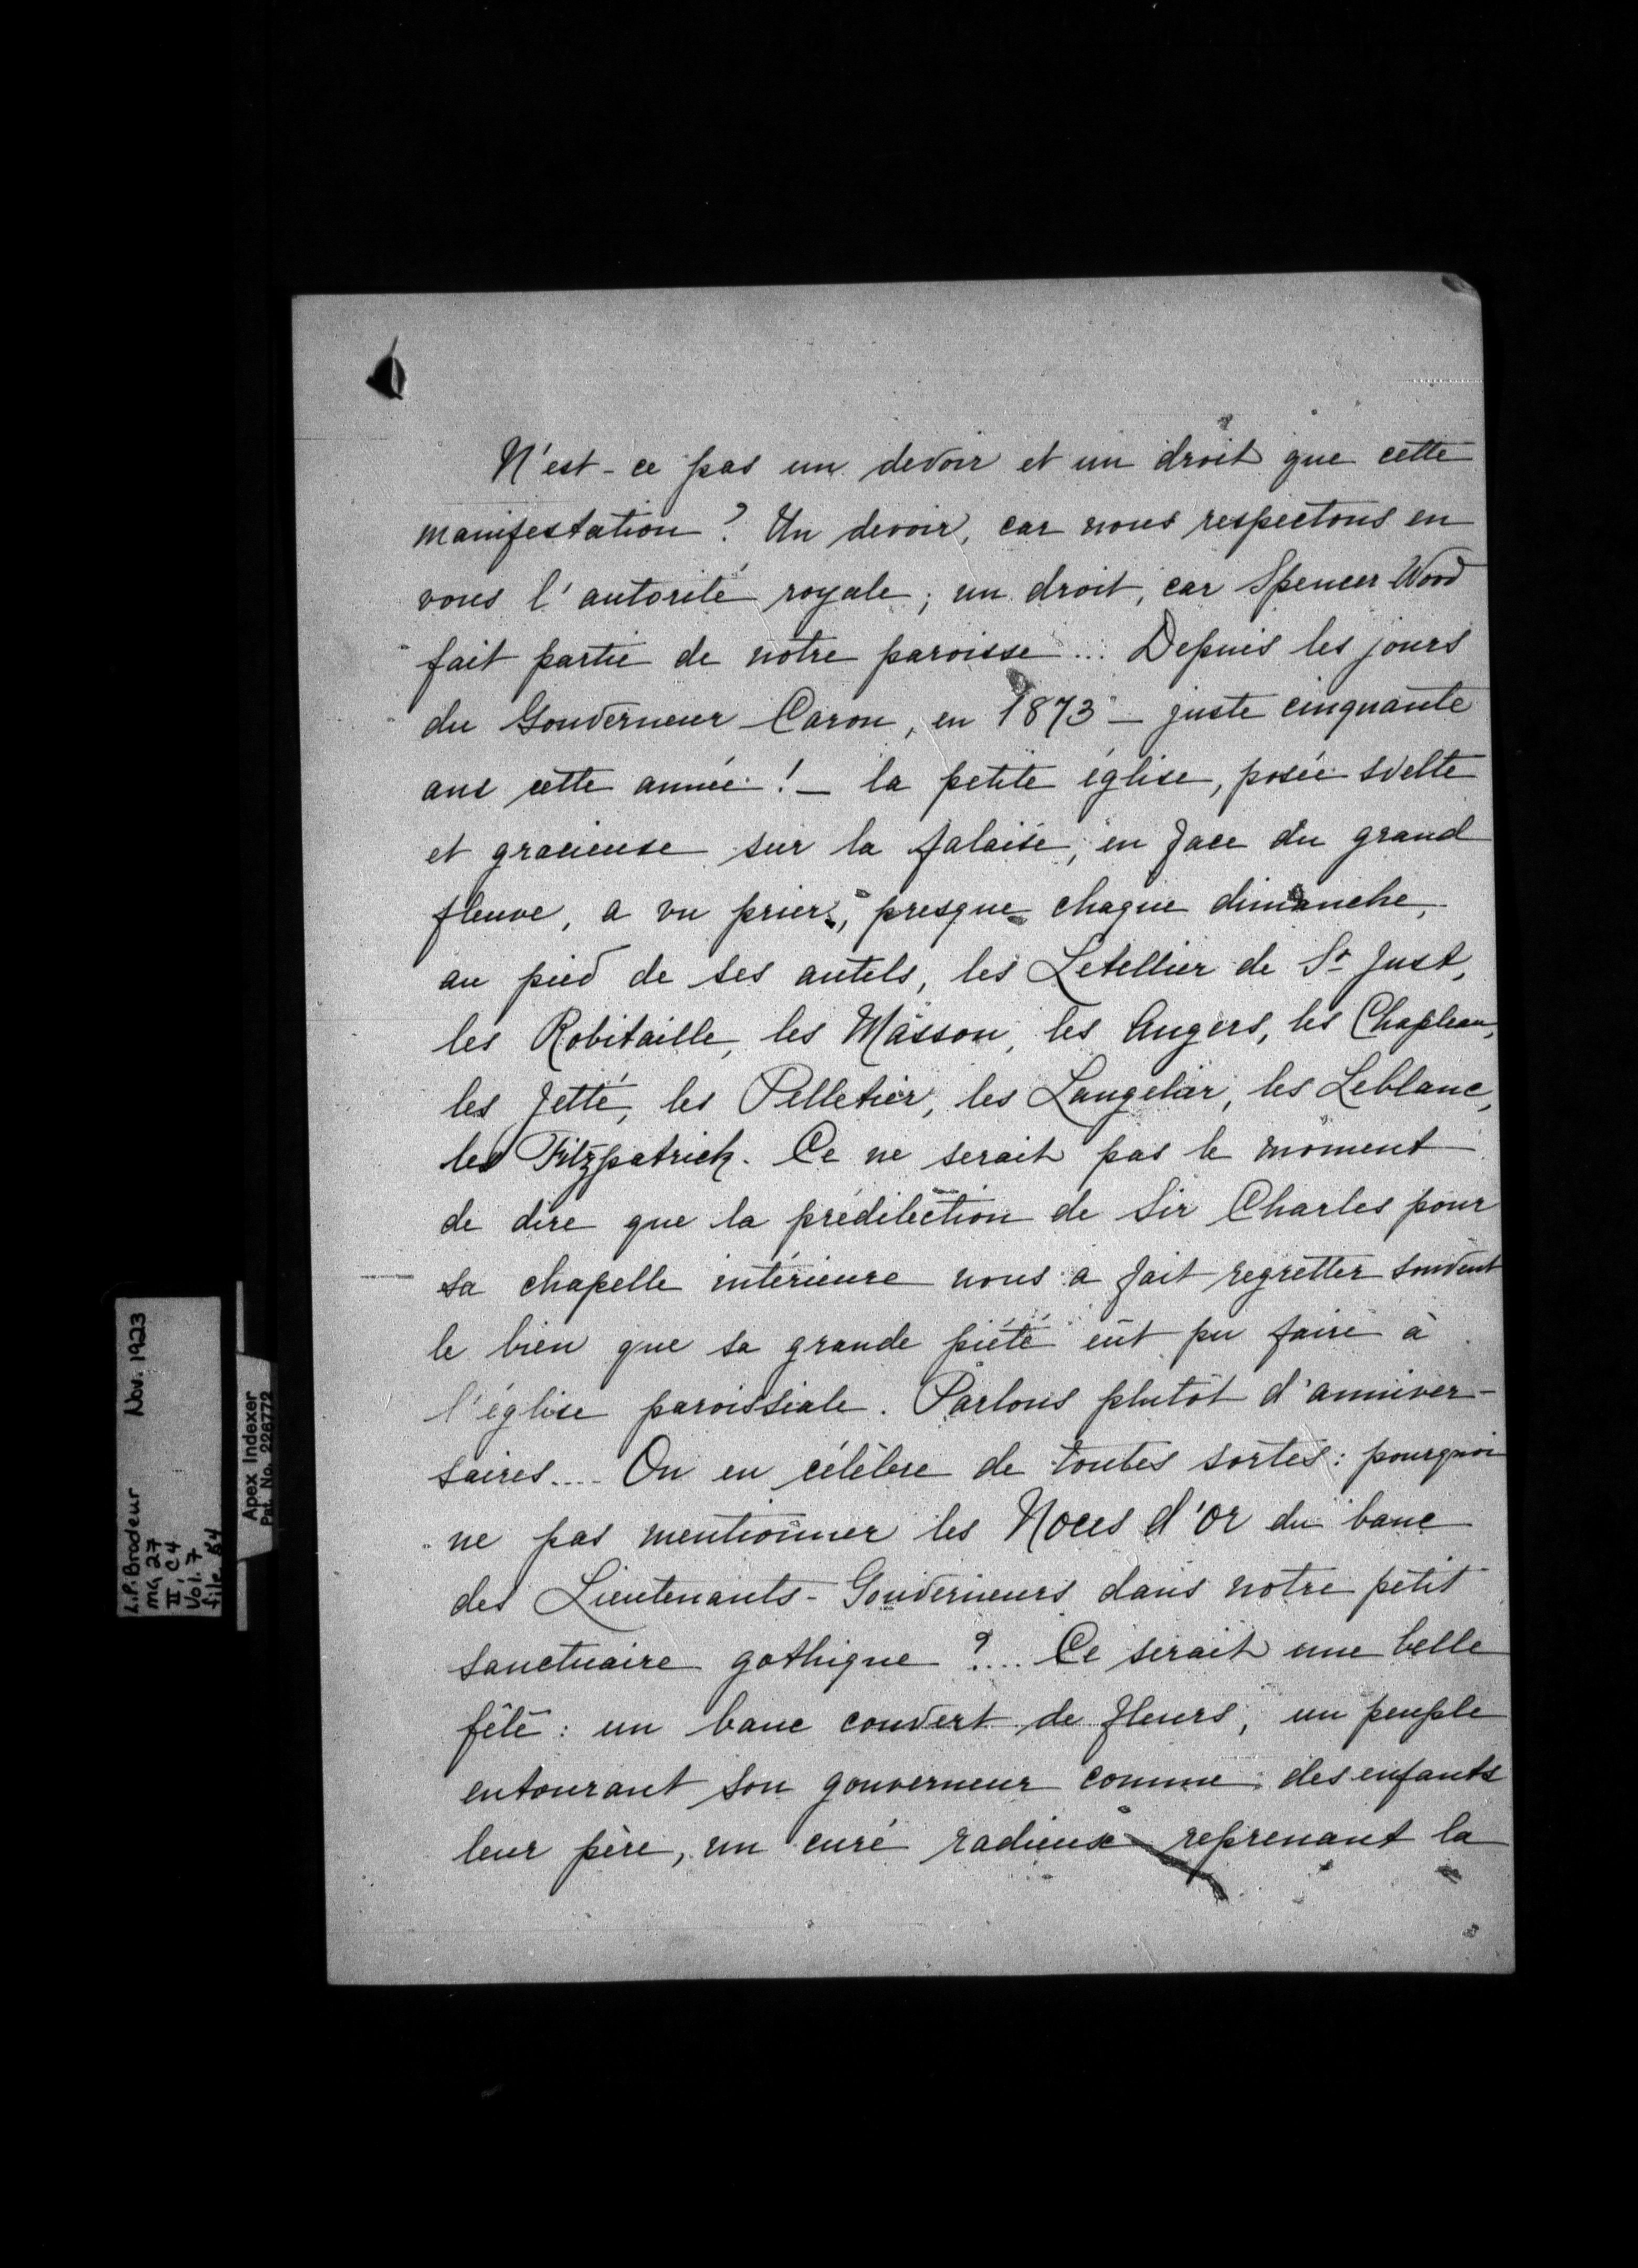 N'est-ce pas un devoir et un droit que cette
manifestation ? Un devoir, car nous respectons en
vous l'autorité royale ; un droit, car Spencer-Wood
fait partie de notre paroisse ... Depuis les jours
du Gouverneur Caron, en 1873 — juste cinquante
ans cette année ! — la petite église, posée svelte
et gracieuse sur la falaise, en face du grand
fleuve, a vu prier, presque chaque dimanche,
au pied de ses autels, les Letellier de St Just,
les Robitaille, les Masson, les Angers, les Chapleau,
les Jetté, les Pelletier, les Langelier, les Leblanc,
les Fitzpatrick. Ce ne serait pas le moment
de dire que la prédilection de Sir Charles pour
sa chapelle intérieure nous a fait regretter souvent
le bien que sa grande piété eût pu faire à
l'église paroissiale. Parlons plutôt d'anniver-
saires.... On en célèbre de toutes sortes : pourquoi
ne pas mentionner les Noces d'or du banc
des Lieutenants-Gouverneurs dans notre petit
sanctuaire gothique ?.... Ce serait une belle
fête : un banc couvert de fleurs, un peuple
entourant son gouverneur comme des enfants
leur père, un curé radieux reprenant la
L.P. Brodeur Nov. 1923
MG 27
III C 4
Vol. 7
file 54
Apex Indexer
Pat. No. 226772